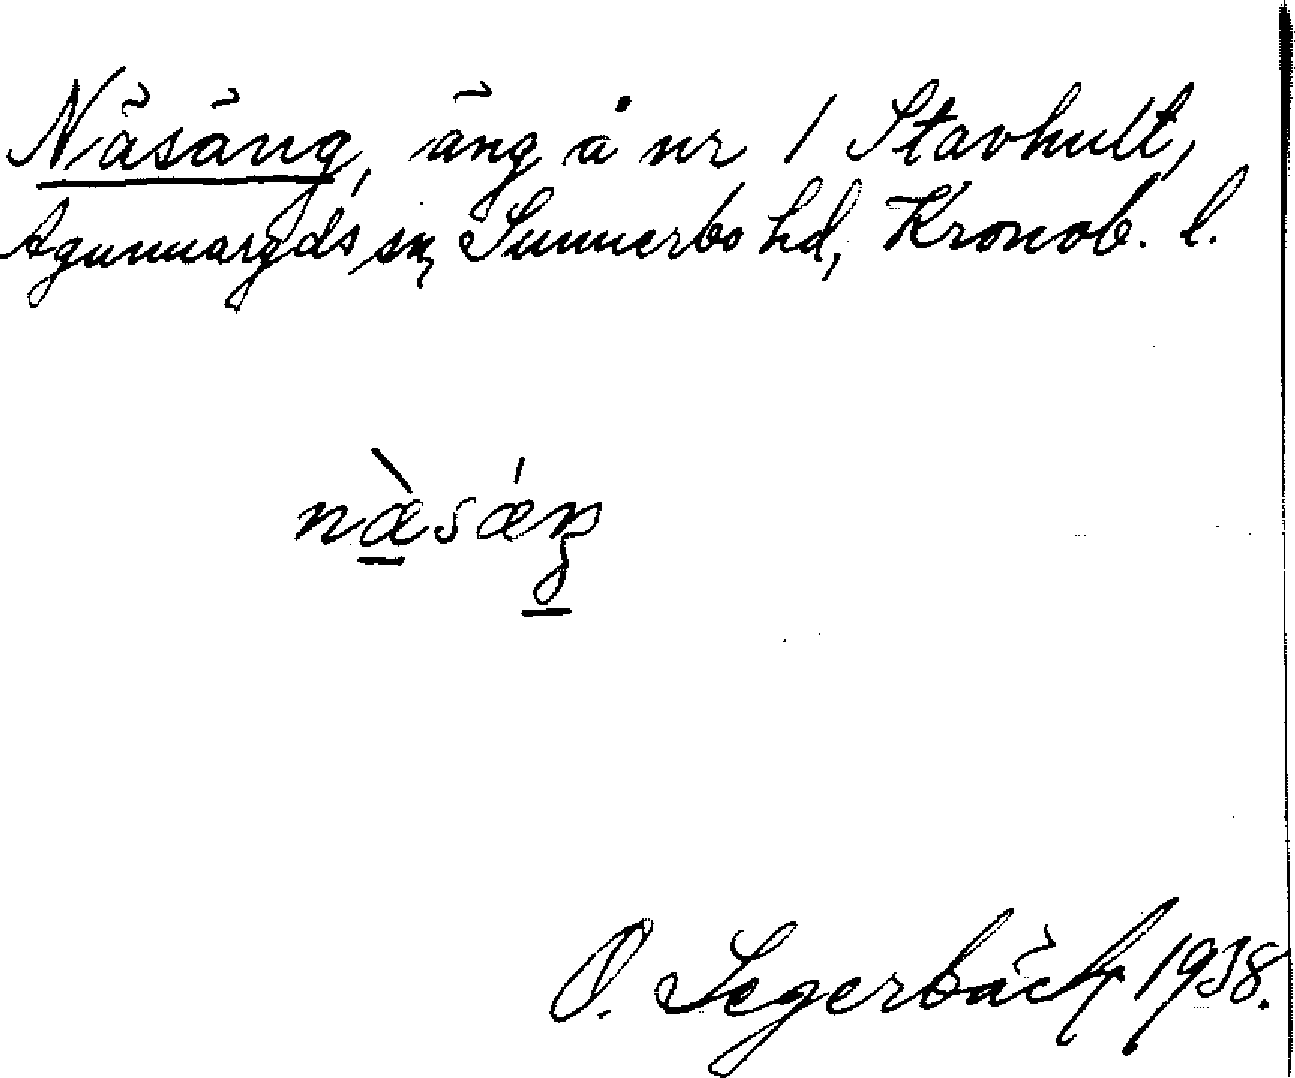 Näsäng, äng å nr 1 Stavhult,
Agunnaryds sn, Sunnerbo hd, Kronob. l.
næ̀sǽŋ
O. Segerbäck 1938.